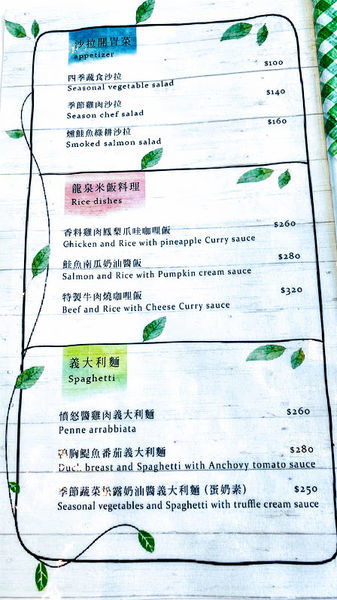 沙拉開胃菜
appetizer
四季蔬食沙拉 $100
Seasonal vegetable salad
季節雞肉沙拉 $140
Season chef salad
燻鮭魚綠拼沙拉 $160
Smoked salmon salad
龍泉米飯料理
Rice dishes
香料雞肉鳳梨爪哇咖哩飯 $260
Chicken and Rice with pineapple Curry sauce
鮭魚南瓜奶油醬飯 $280
Salmon and Rice with Pumpkin cream sauce
特製牛肉燒咖哩飯 $320
Beef and Rice with Cheese Curry sauce
義大利麵
Spaghetti
憤怒醬雞肉義大利麵 $260
Penne arrabbiata
鴨胸鯷魚番茄義大利麵 $280
Duck breast and Spaghetti with Anchovy tomato sauce
季節蔬菜松露奶油醬義大利麵 (蛋奶素) $250
Seasonal vegetables and Spaghetti with truffle cream sauce